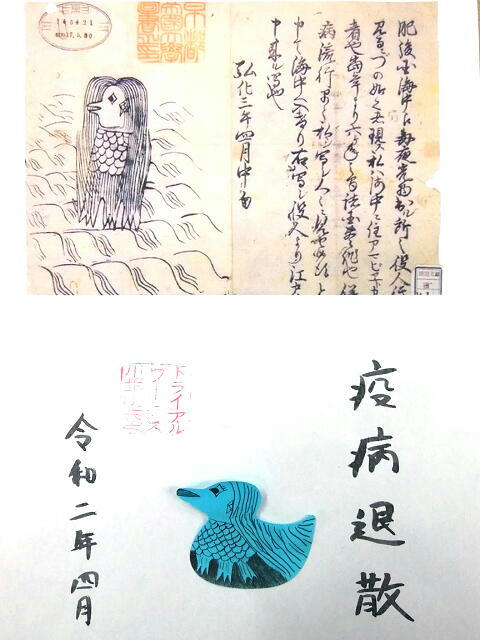 肥後国海中江毎夜光物出ル所之役人行
見るニづの如之者現ス私ハ海中ニ住アマビヱト
者也當年より六ヶ年之間諸国豊作也併
病流行早々私ヲ写シ人々ニ見せ候得と
申て海中へ入けり右ハ写シ役人より江戸
申来ル写也
弘化三年四月中旬
京都
帝國大學
圖書之印
疫病退散
トライアル
ワークス
令和二年四月